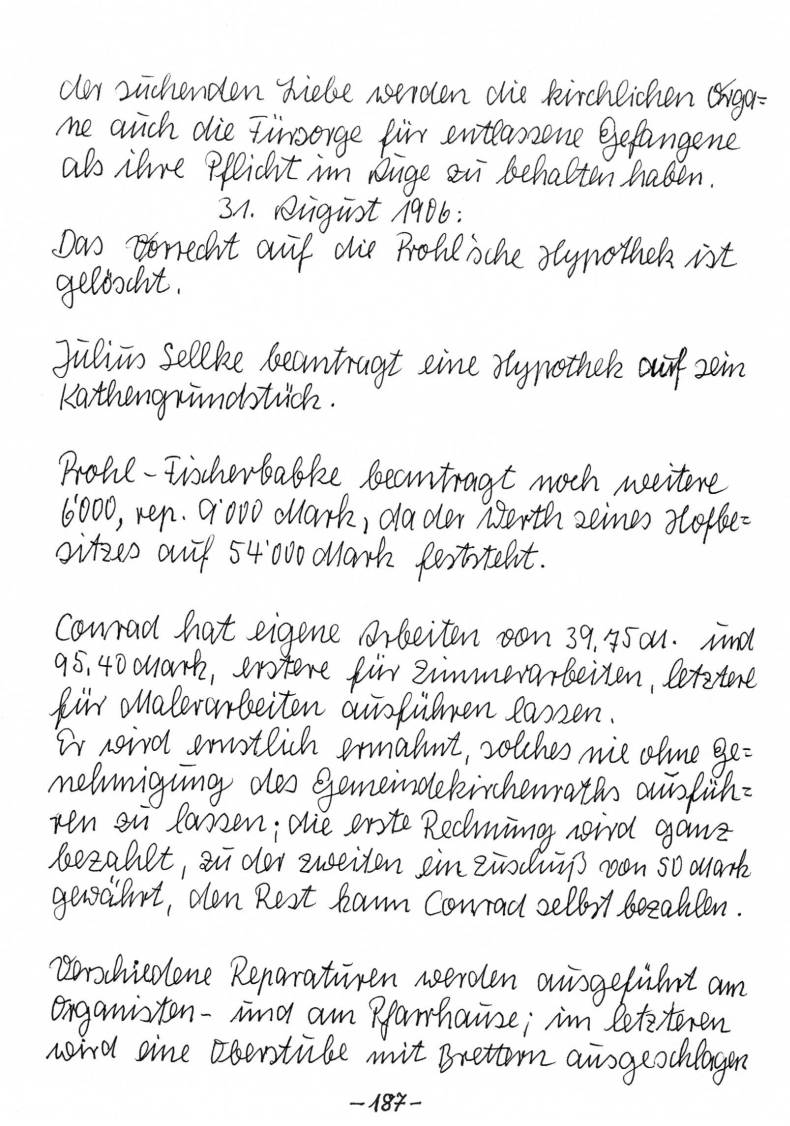 der suchenden Liebe werden die kirchlichen Orga=
ne auch die Fürsorge für entlassene Gefangene
als ihre Pflicht im Auge zu behalten haben.
31. August 1906:
Das Vorrecht auf die Prohl'sche Hypothek ist
gelöscht.
Julius Sellke beantragt eine Hypothek auf sein
Kathengrundstück.
Prohl - Fischerbabke beantragt noch weitere
6'000, rep. 9'000 Mark, da der Werth seines Hofbe=
sitzes auf 54'000 Mark feststeht.
Conrad hat eigene Arbeiten von 39,75 M. und
95,40 Mark, erstere für Zimmerarbeiten, letztere
für Malerarbeiten ausführen lassen.
Er wird ernstlich ermahnt, solches nie ohne Ge=
nehmigung des Gemeindekirchenraths ausfüh=
ren zu lassen; die erste Rechnung wird ganz
bezahlt, zu der zweiten ein Zuschuß von 50 Mark
gewährt, den Rest kann Conrad selbst bezahlen.
Verschiedene Reparaturen werden ausgeführt am
Organisten- und am Pfarrhause; im letzteren
wird eine Oberstube mit Brettern ausgeschlagen
- 187 -